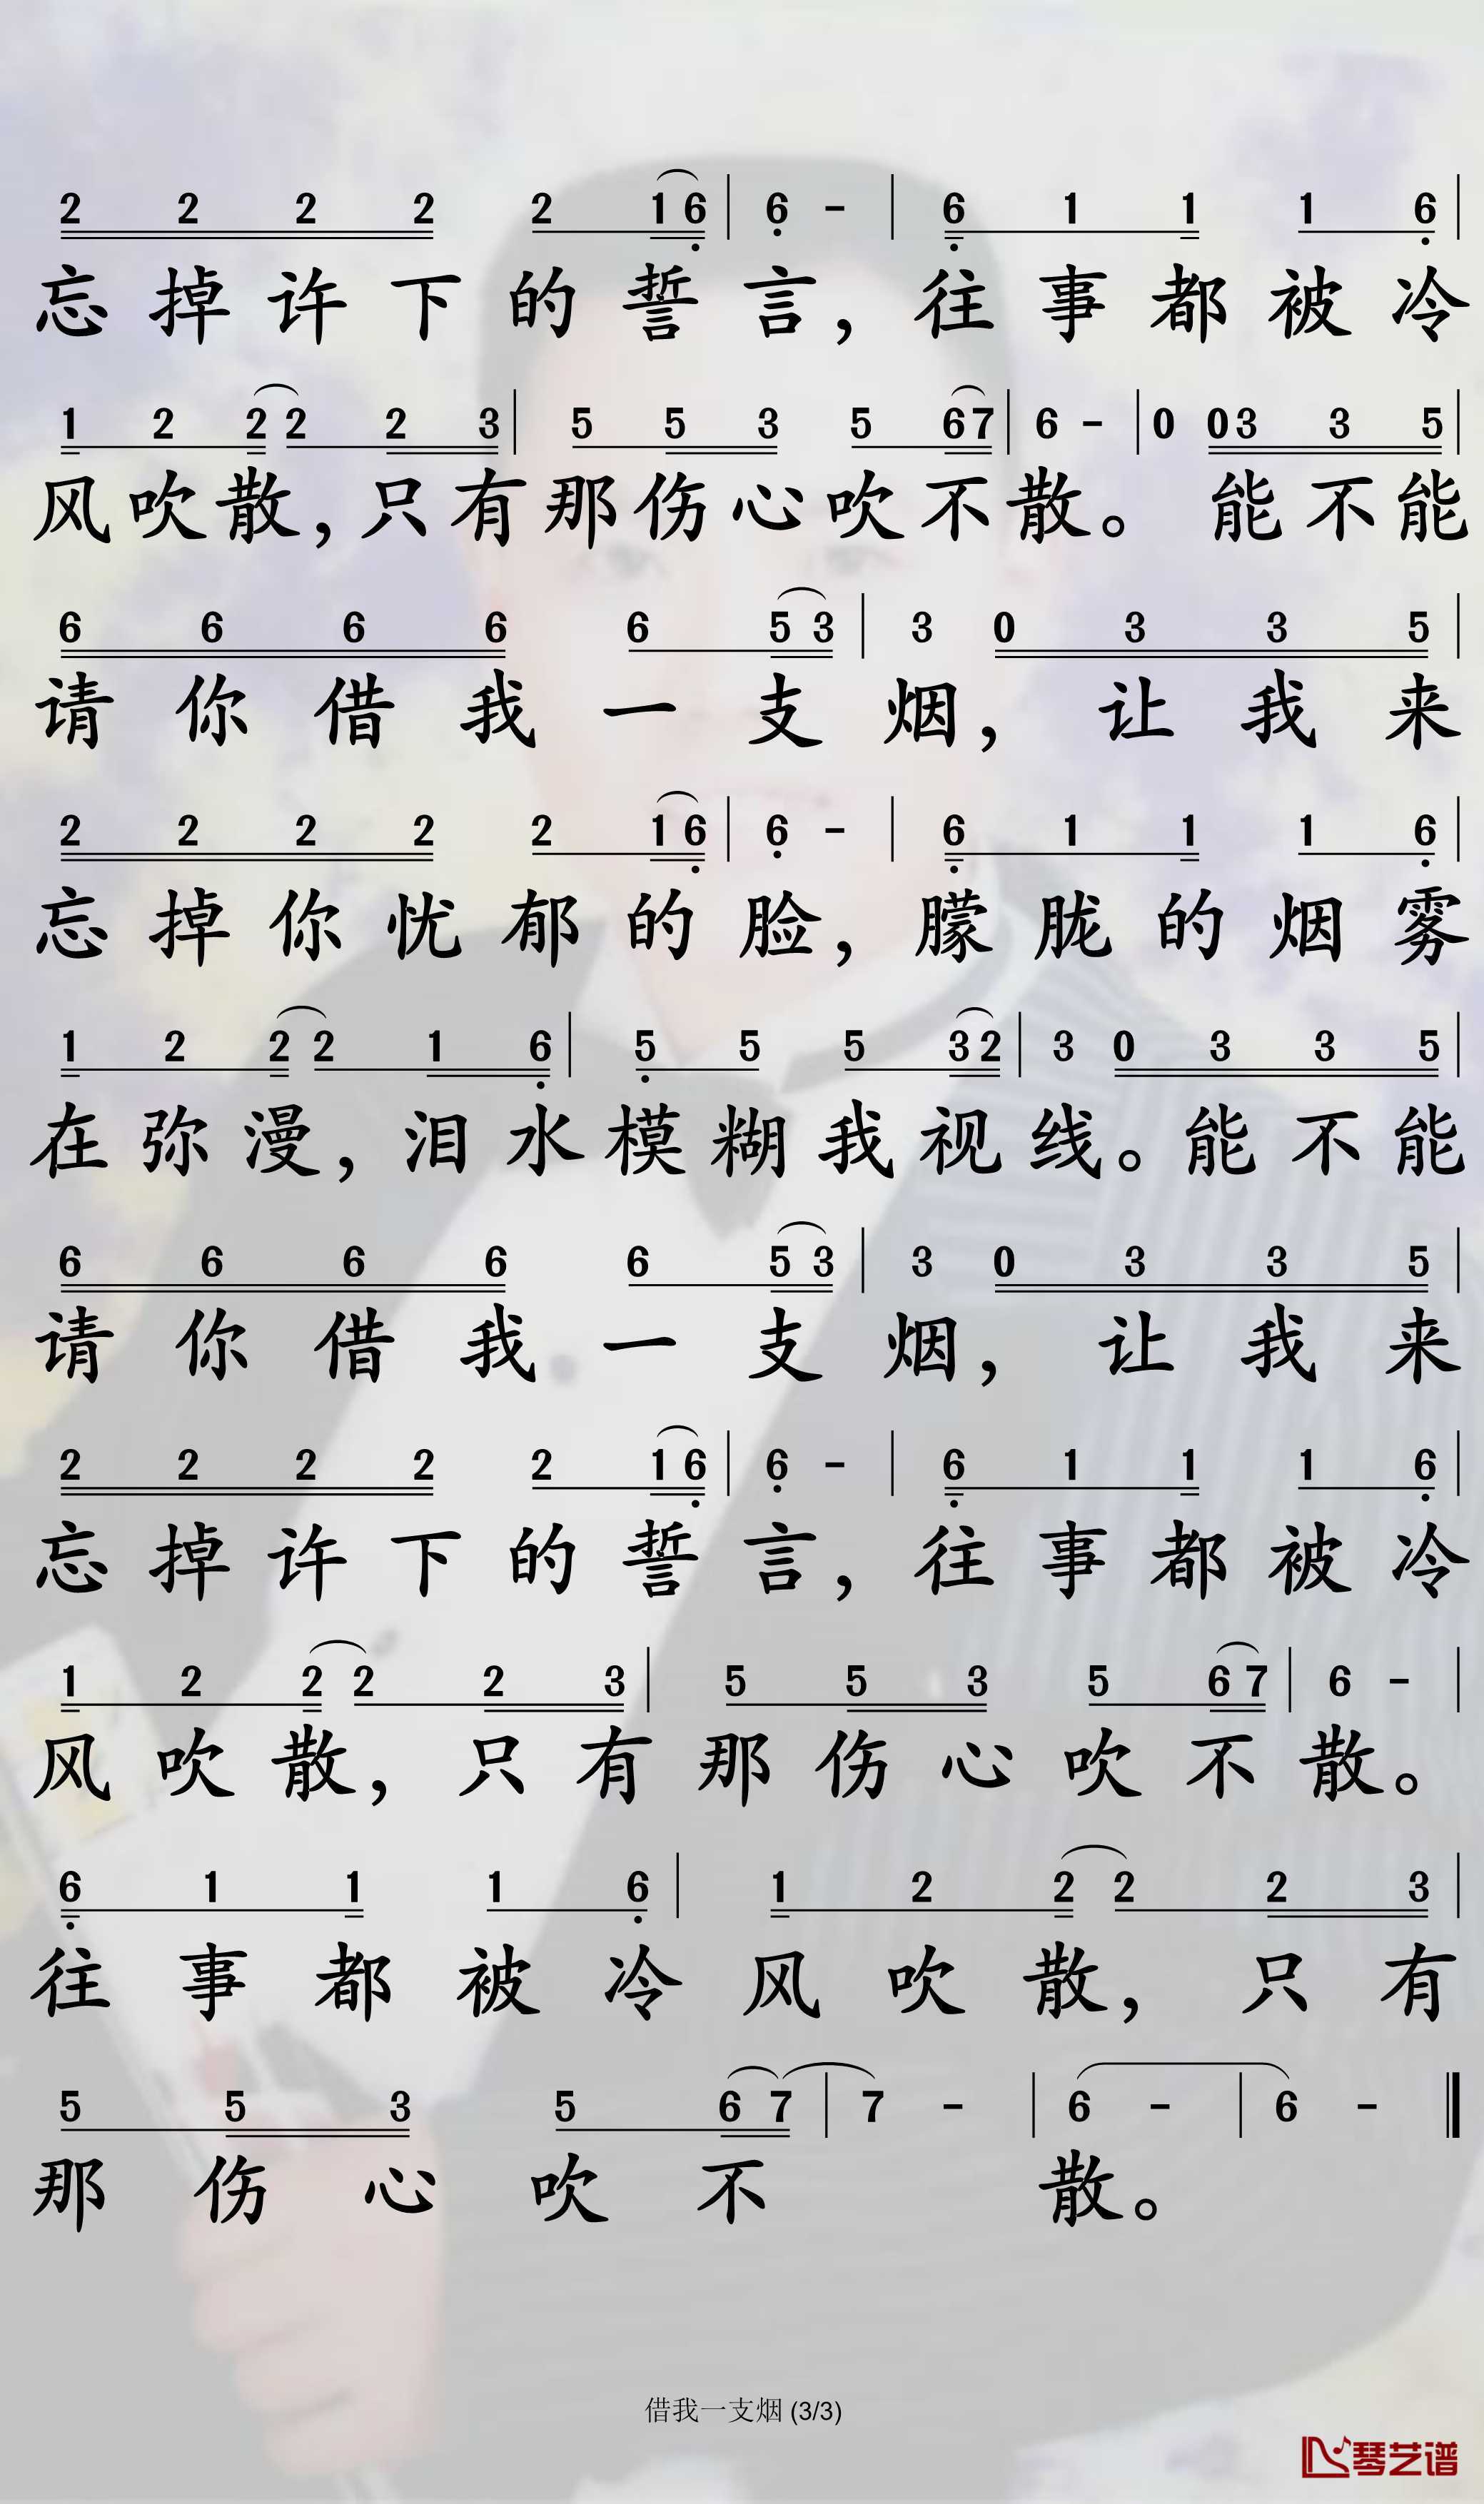 2 2 2 2 2 1 6 | 6 - | 6 1 1 1 6 |
忘掉许下的誓言，往事都被冷
1 2 2 2 2 3 | 5 5 3 5 6 7 | 6 - | 0 0 3 3 5 |
风吹散，只有那伤心吹不散。能不能
6 6 6 6 6 5 3 | 3 0 3 3 5 |
请你借我一支烟，让我来
2 2 2 2 2 1 6 | 6 - | 6 1 1 1 6 |
忘掉你忧郁的脸，朦胧的烟雾
1 2 2 2 1 6 | 5 5 5 3 2 | 3 0 3 3 5 |
在弥漫，泪水模糊我视线。能不能
6 6 6 6 6 5 3 | 3 0 3 3 5 |
请你借我一支烟，让我来
2 2 2 2 2 1 6 | 6 - | 6 1 1 1 6 |
忘掉许下的誓言，往事都被冷
1 2 2 2 2 3 | 5 5 3 5 6 7 | 6 - |
风吹散，只有那伤心吹不散。
6 1 1 1 6 | 1 2 2 2 2 3 |
往事都被冷风吹散，只有
5 5 3 5 6 7 | 7 - | 6 - | 6 - ‖
那伤心吹不散。
借我一支烟 (3/3)
琴艺谱